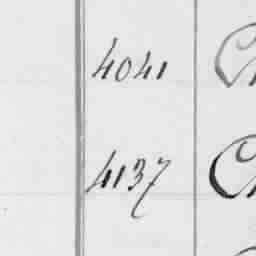 4041
4137